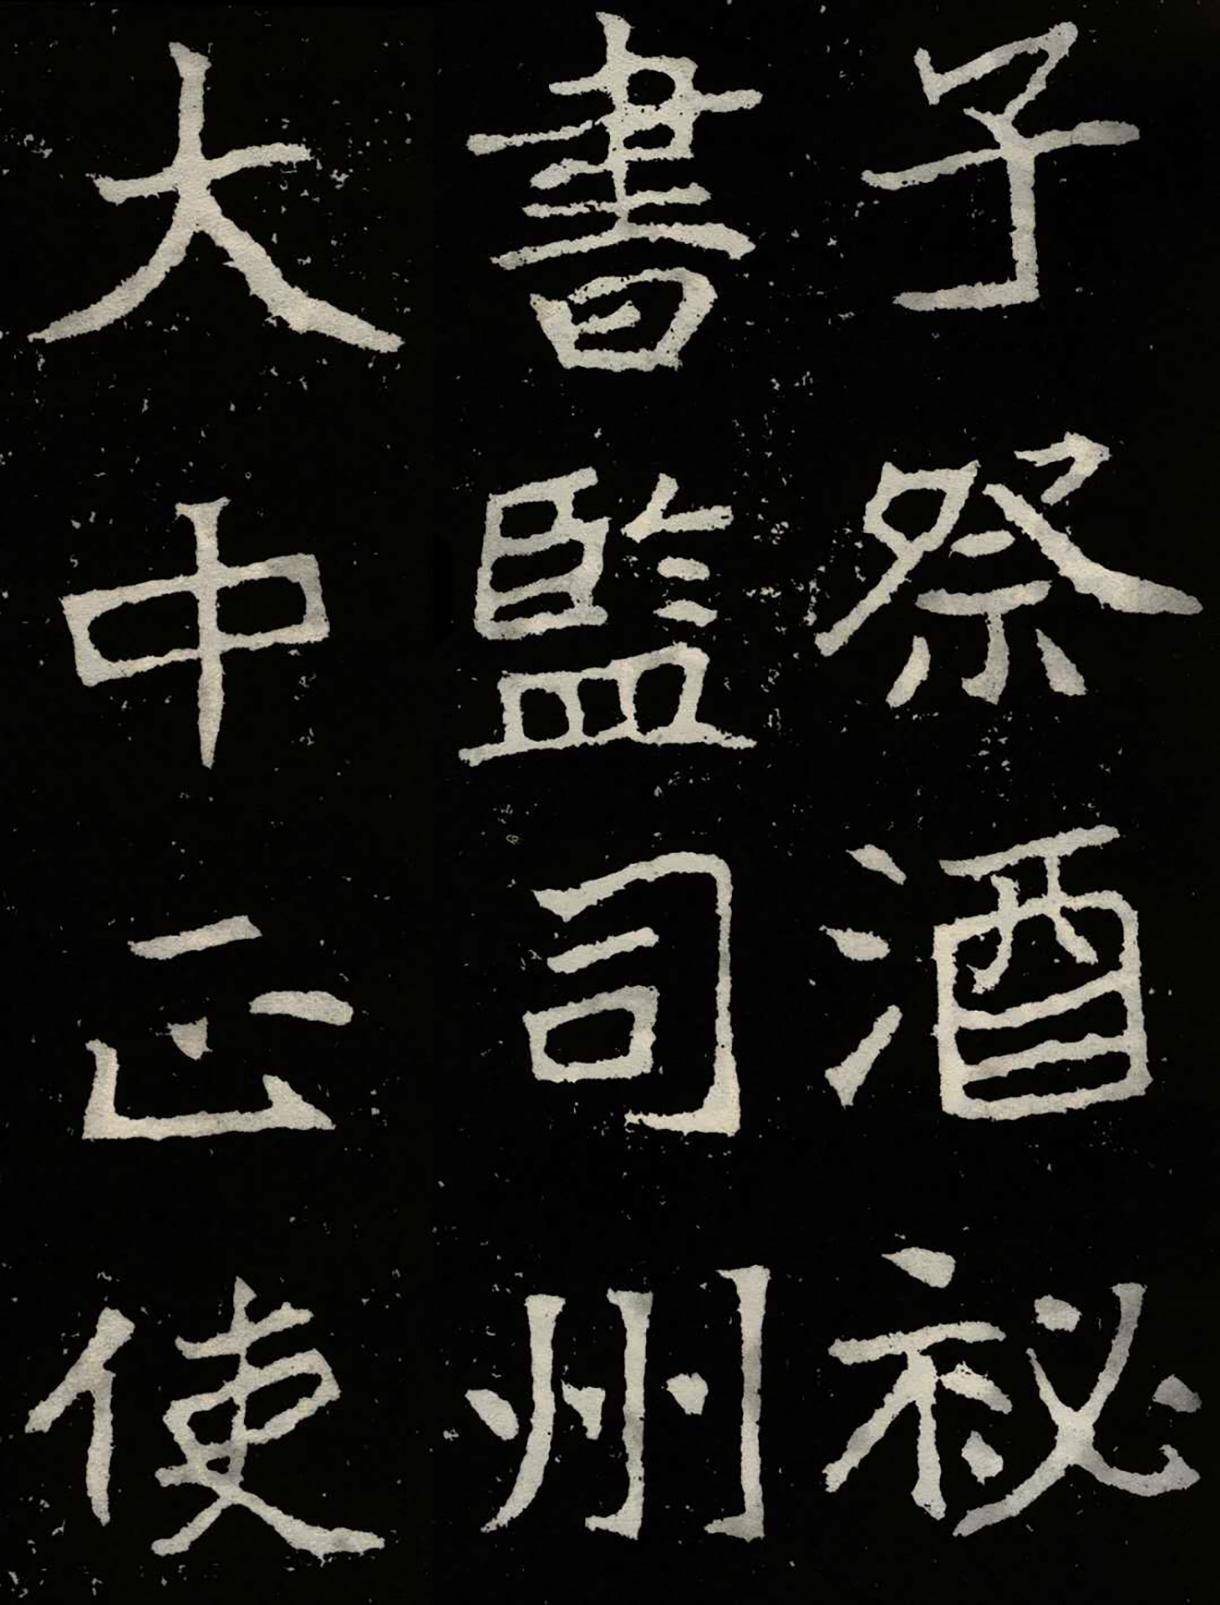 子祭酒祕
書監司州
大中正使